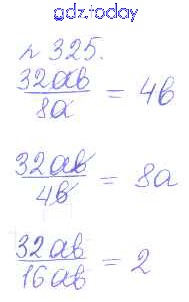 gdz.today
№ 325.
32ab/8a = 4b
32ab/4b = 8a
32ab/16ab = 2